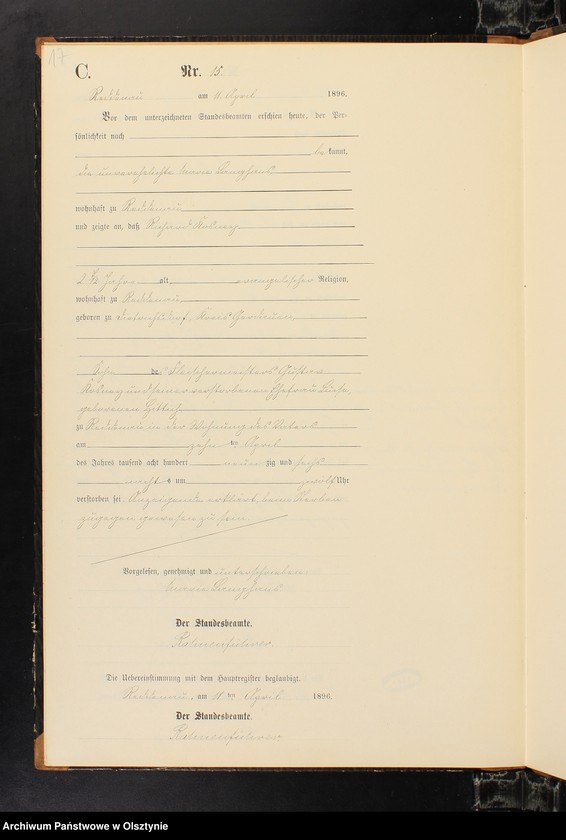 17
C.
Nr. 15
Reddenau am 11 April 1896.
Vor dem unterzeichneten Standesbeamten erschien heute, der Per-
sönlichkeit nach
be kannt,
die unverehelichte Maria Langhans
wohnhaft zu Reddenau
und zeigte an, daß Richard
2 1/2 Jahre alt, evangelischer Religion,
wohnhaft zu Reddenau
geboren zu Kreis Gerdauen
Sohn des Fleischermeisters Gustav
und seiner verstorbenen Ehefrau
geborenen
zu Reddenau in der Wohnung des Vaters
am zehn ten April
des Jahres tausend acht hundert neun zig und sechs
nachts um zwölf Uhr
verstorben sei. Anzeigende erklärt, beim Sterben
zugegen gewesen zu sein
Vorgelesen, genehmigt und unterschrieben
Maria Langhans
Der Standesbeamte.
Die Uebereinstimmung mit dem Hauptregister beglaubigt.
Reddenau, am 11 ten April 1896.
Der Standesbeamte.
Archiwum Państwowe w Olsztynie